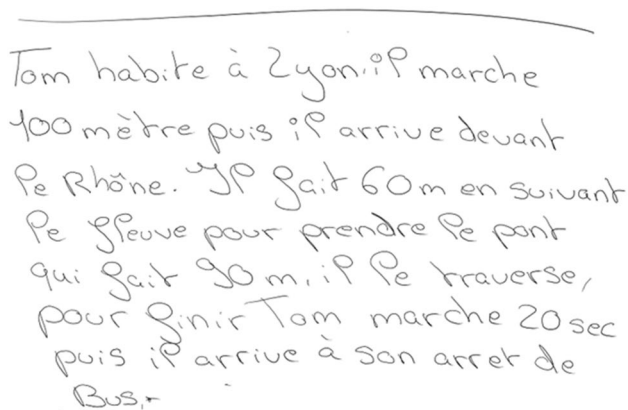 Tom habite à Lyon. il marche
100 mètre puis il arrive devant
le Rhône. Il fait 60 m en suivant
le fleuve pour prendre le pont
qui fait 90 m, il le traverse,
pour finir Tom marche 20 sec
puis il arrive à son arret de
Bus.